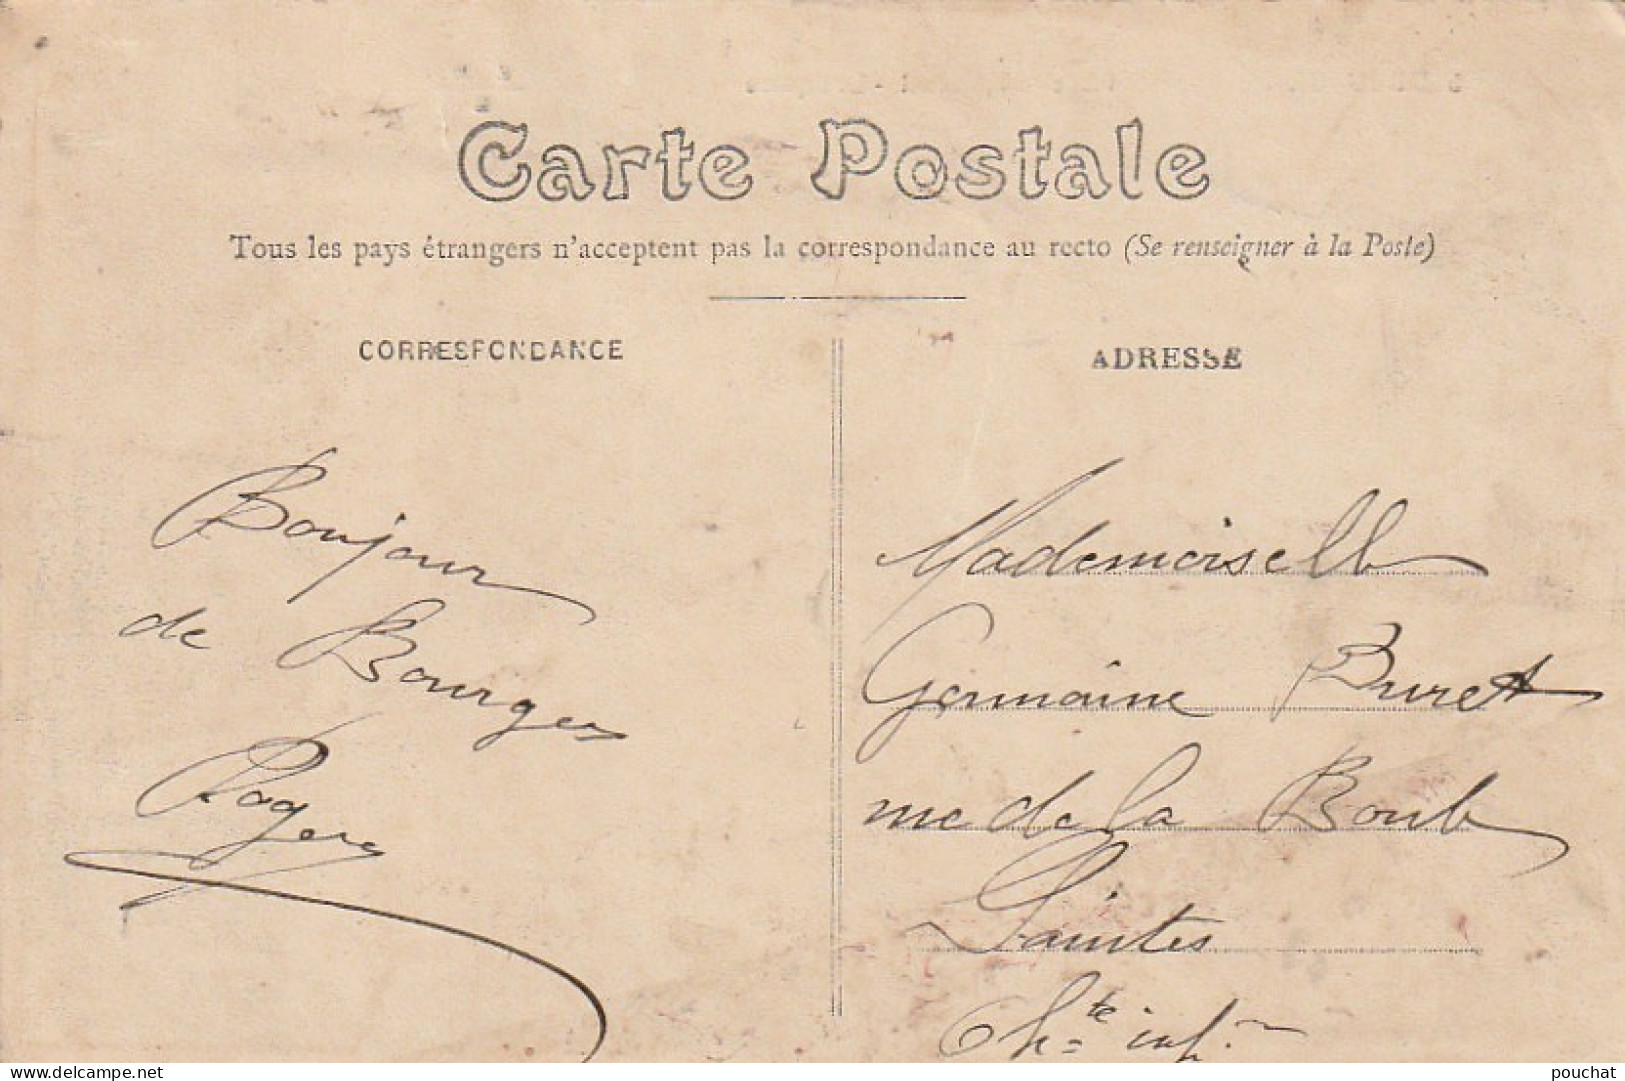 Carte Postale
Tous les pays étrangers n'acceptent pas la correspondance au recto (Se renseigner à la Poste)
CORRESPONDANCE
ADRESSE
Bonjour
de Bourges
Roger
Mademoiselle
Germaine Buret
rue de la Boule
Saintes
Ch.te inf.
delcampe.net
pouchat